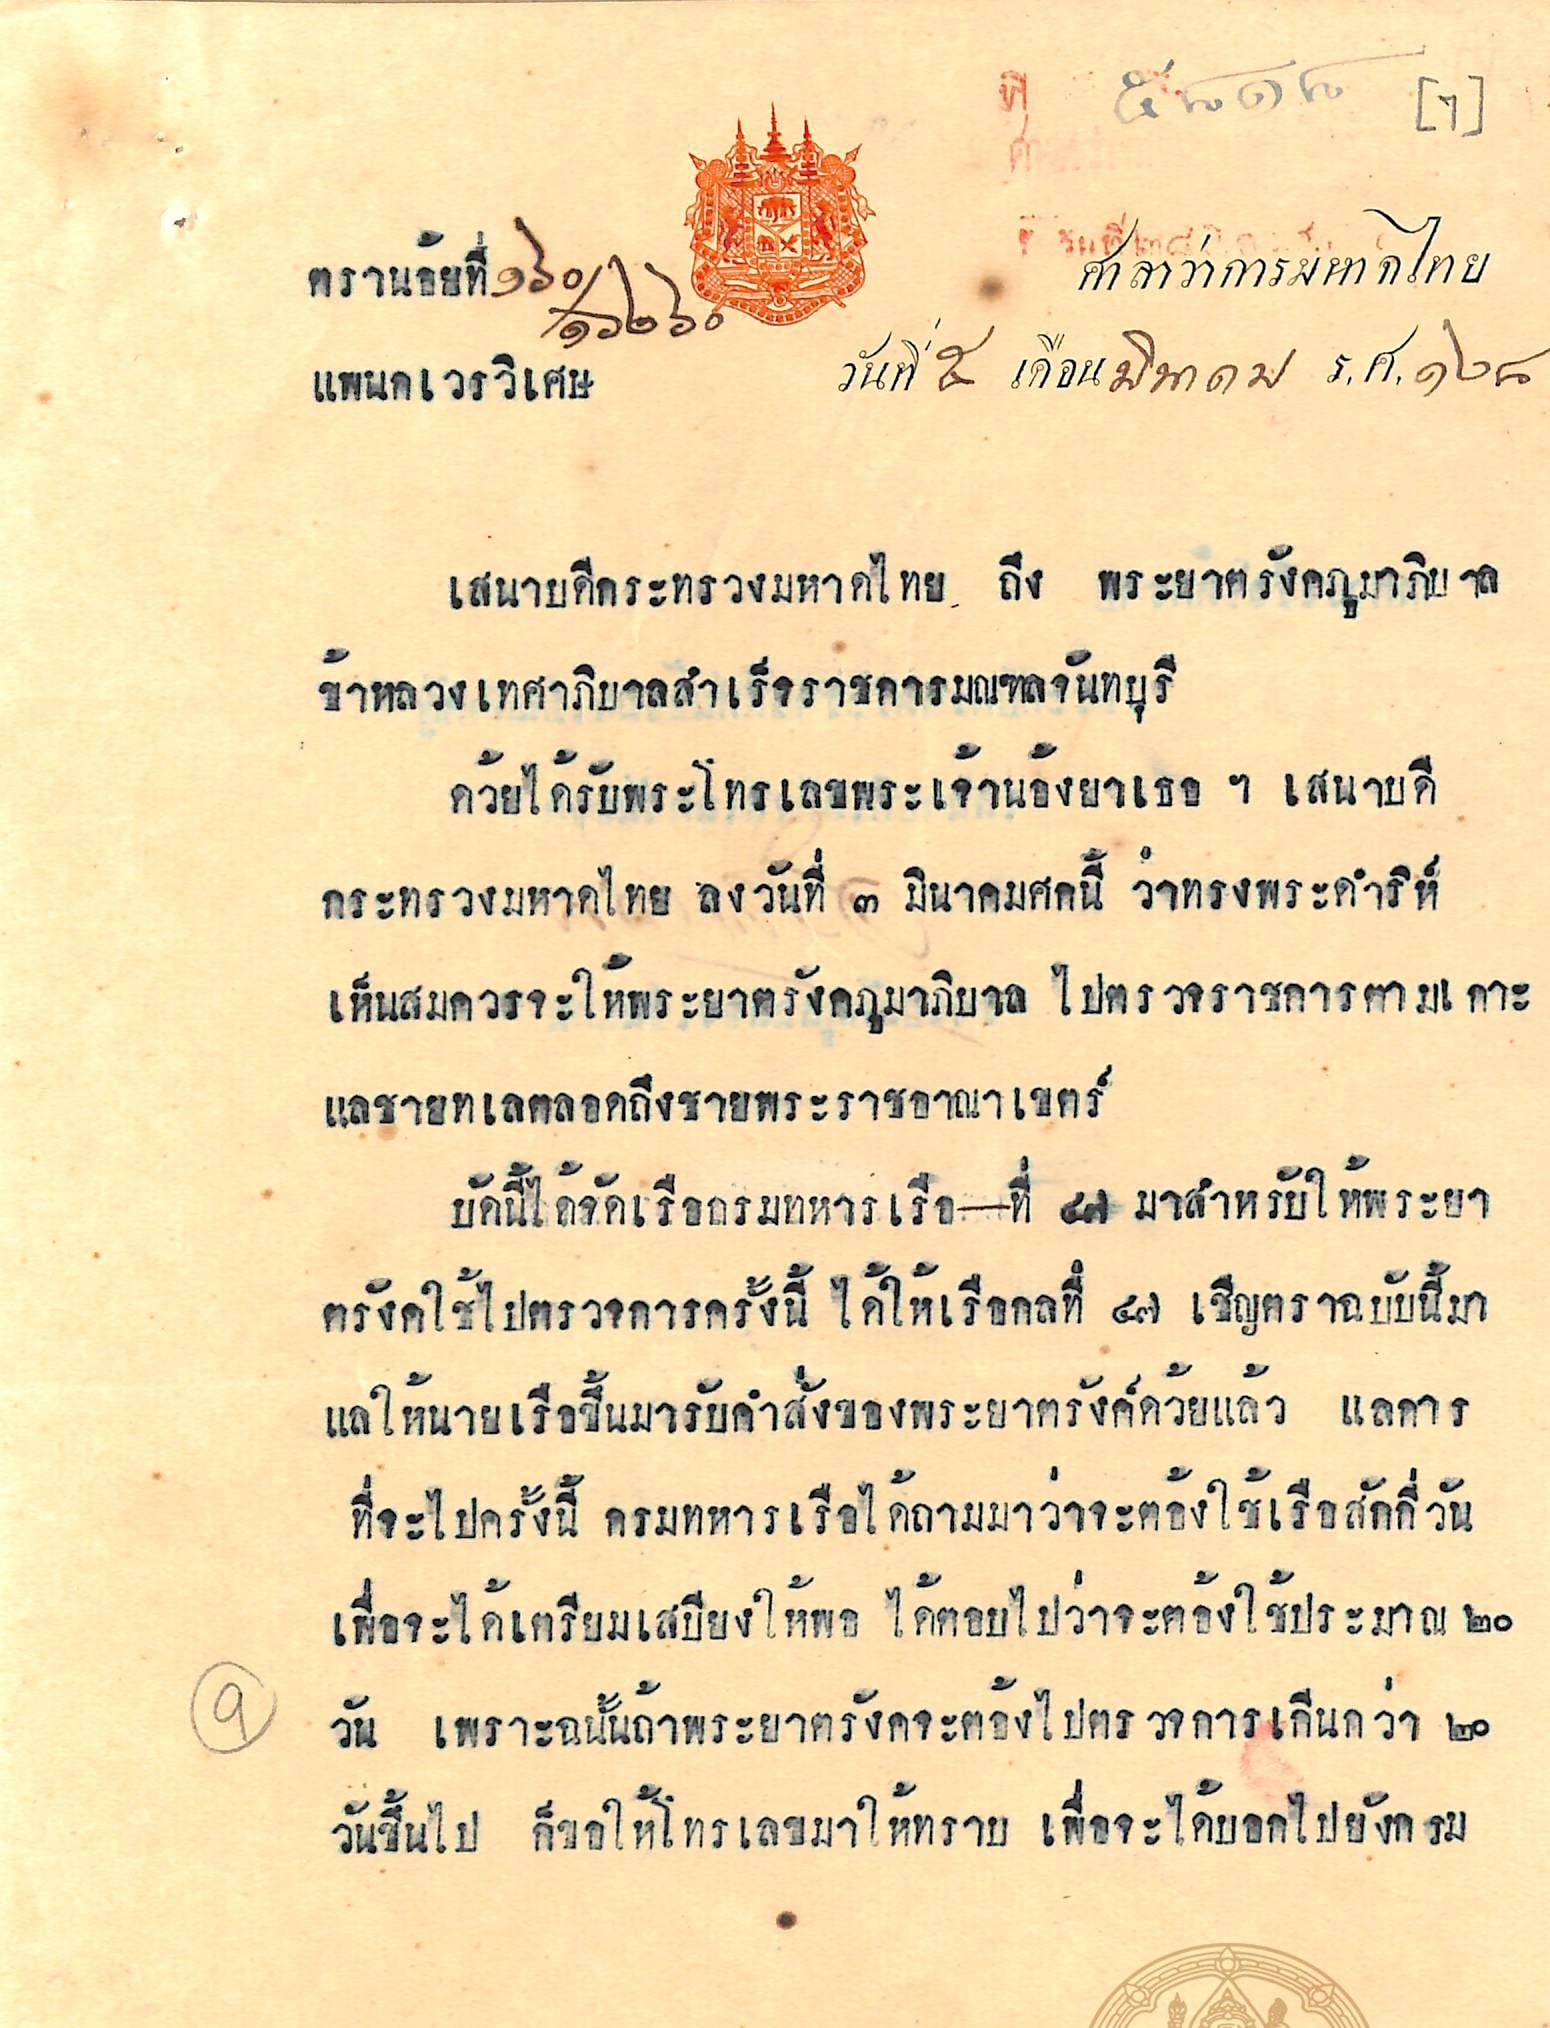 [ๆ]
ที่
ตราน้อยที่ ๑๖๐/๑๖๒๖๐
ศาลาว่าการมหาดไทย
แพนกเวรวิเศษ
วันที่ ๕ เดือน มีนาคม ร,ศ,๑๒๘
เสนาบดีกระทรวงมหาดไทย ถึง พระยาตรังคภูมาภิบาล
ข้าหลวงเทศาภิบาลสำเร็จราชการมณฑลจันทบุรี
ด้วยได้รับพระโทรเลขพระเจ้าน้องยาเธอ ฯ เสนาบดี
กระทรวงมหาดไทย ลงวันที่ ๓ มีนาคมศกนี้ ว่าทรงพระดำริห์
เห็นสมควรจะให้พระยาตรังคภูมาภิบาล ไปตรวจราชการตามเกาะ
แลชายทเลตลอดถึงชายพระราชอาณาเขตร์
บัดนี้ได้จัดเรือกรมทหารเรือ—ที่ ๔๗ มาสำหรับให้พระยา
ตรังคใช้ไปตรวจการครั้งนี้ ได้ให้เรือกลที่ ๔๗ เชิญตราฉบับนี้มา
แลให้นายเรือขึ้นมารับคำสั่งของพระยาตรังค์ด้วยแล้ว แลการ
ที่จะไปครั้งนี้ กรมทหารเรือได้ถามมาว่าจะต้องใช้เรือสักกี่วัน
เพื่อจะได้เตรียมเสบียงให้พอ ได้ตอบไปว่าจะต้องใช้ประมาณ ๒๐
วัน เพราะฉนั้นถ้าพระยาตรังคจะต้องไปตรวจการเกินกว่า ๒๐
๑
วันขึ้นไป ก็ขอให้โทรเลขมาให้ทราบ เพื่อจะได้บอกไปยังกรม